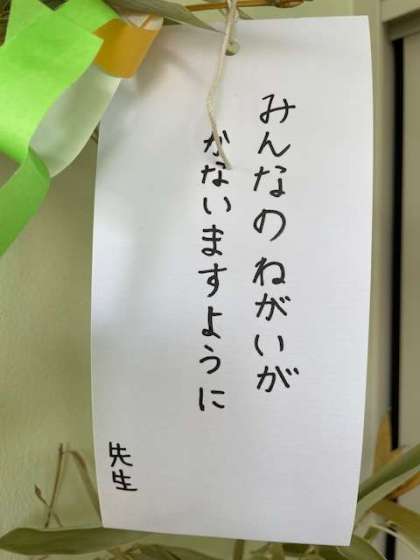 みんなのねがいが
かないますように
先生